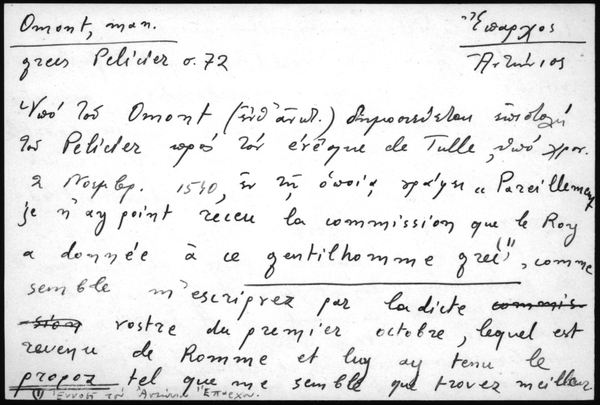 Omont, man.
Ἔπαρχος
grecs Pelicier σ. 72
Ἀντώνιος
Ὑπό τοῦ Omont (ἐνθ' ἀνωτ.) δημοσιεύεται ἐπιστολή
τοῦ Pelicier πρός τόν évêque de Tulle, ὑπό χρον.
2 Νοεμβρ. 1540, ἐν τῇ ὁποίᾳ γράφει "Pareillement
je n'ay point receu la commission que le Roy
a donnée à ce gentilhomme grec(1), comme
semble m'escripvez par ladicte commis-
sion vostre du premier octobre, lequel est
revenu de Romme et luy ay tenu le
propoz tel que me semble que trovez meilleur
(1) Ἐννοεῖ τόν Ἀντώνιον Ἔπαρχον.